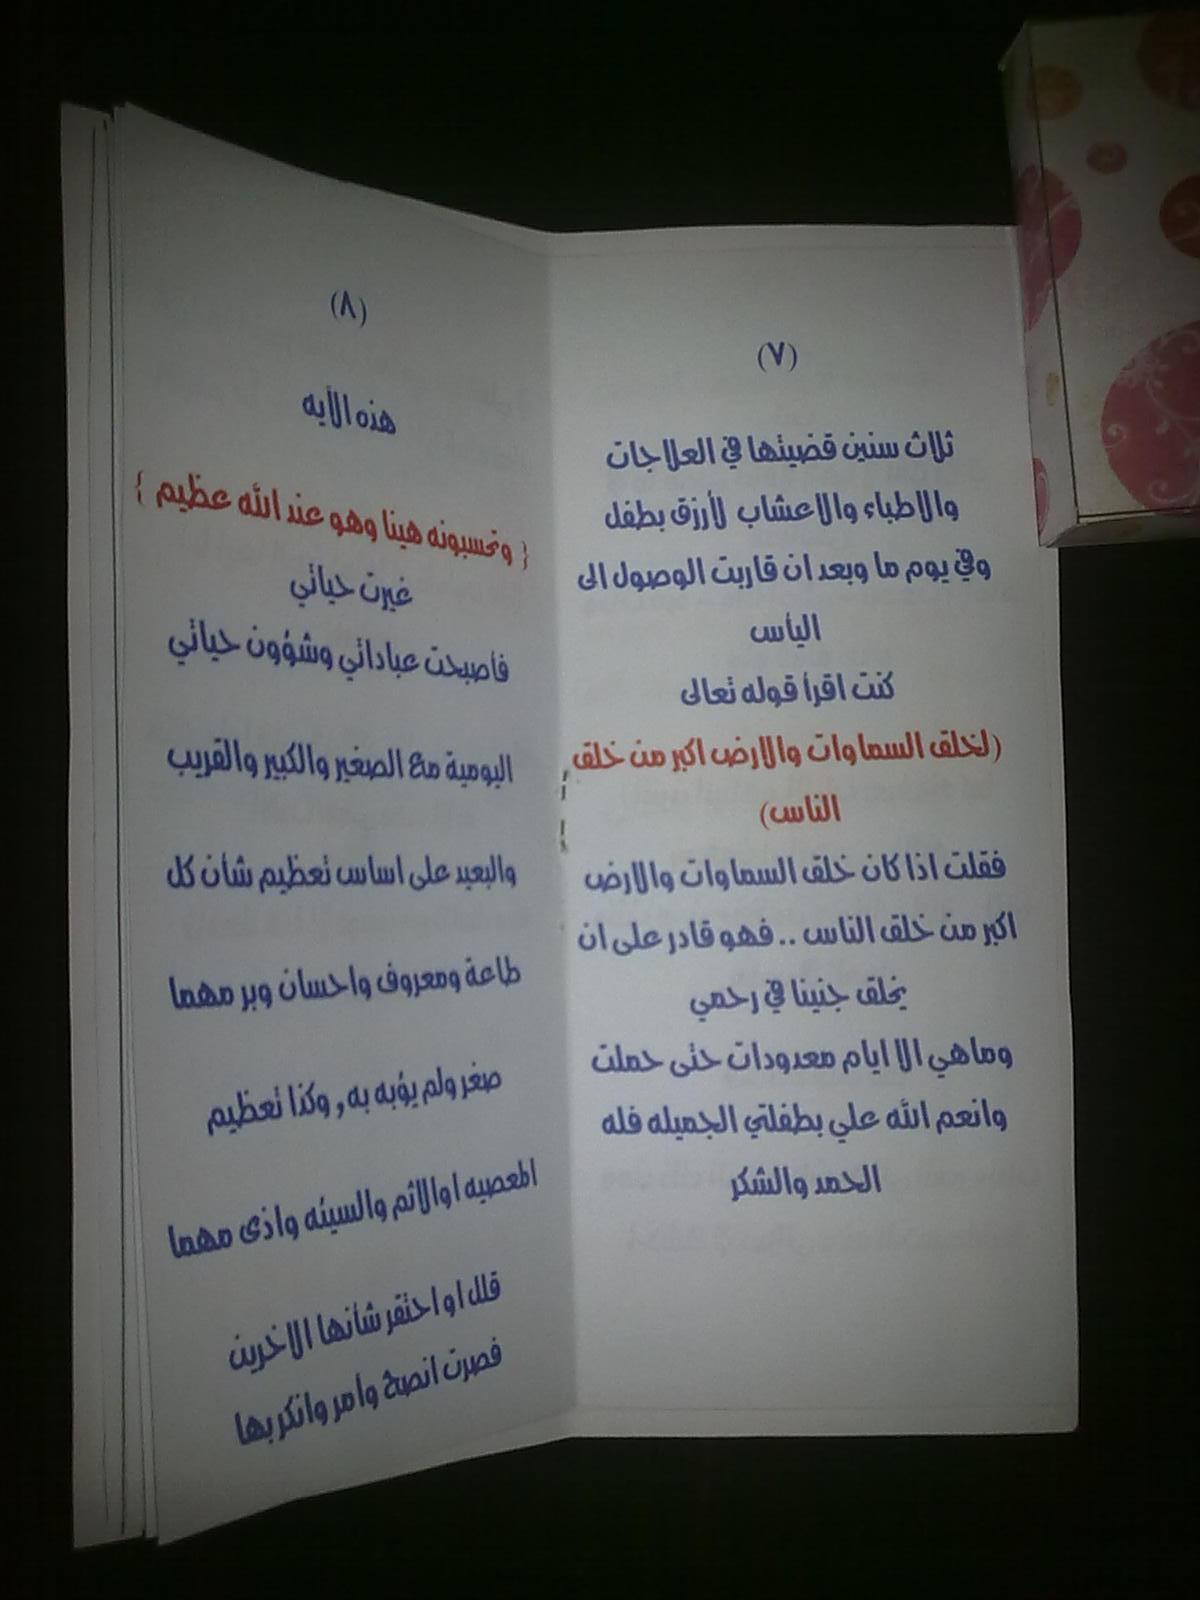 (٧)
ثلاث سنين قضيتها في العلاجات
والاطباء والاعشاب لأرزق بطفل
وفي يوم ما وبعد ان قاربت الوصول الى
اليأس
كنت اقرأ قوله تعالى
(لخلق السماوات والارض اكبر من خلق
الناس)
فقلت اذا كان خلق السماوات والارض
اكبر من خلق الناس .. فهو قادر على ان
يخلق جنينا في رحمي
وماهي الا ايام معدودات حتى حملت
وانعم الله علي بطفلتي الجميله فله
الحمد والشكر
(٨)
هذه الأيه
{ وتحسبونه هينا وهو عند الله عظيم }
غيرت حياتي
فأصبحت عباداتي وشؤون حياتي
اليومية مع الصغير والكبير والقريب
والبعيد على اساس تعظيم شأن كل
طاعة ومعروف واحسان وبر مهما
صغر ولم يؤبه به, وكذا تعظيم
المعصيه او الاثم والسيئه واذى مهما
قلل او احتقر شأنها الاخرين
فصرت انصح وامر وانكر بها